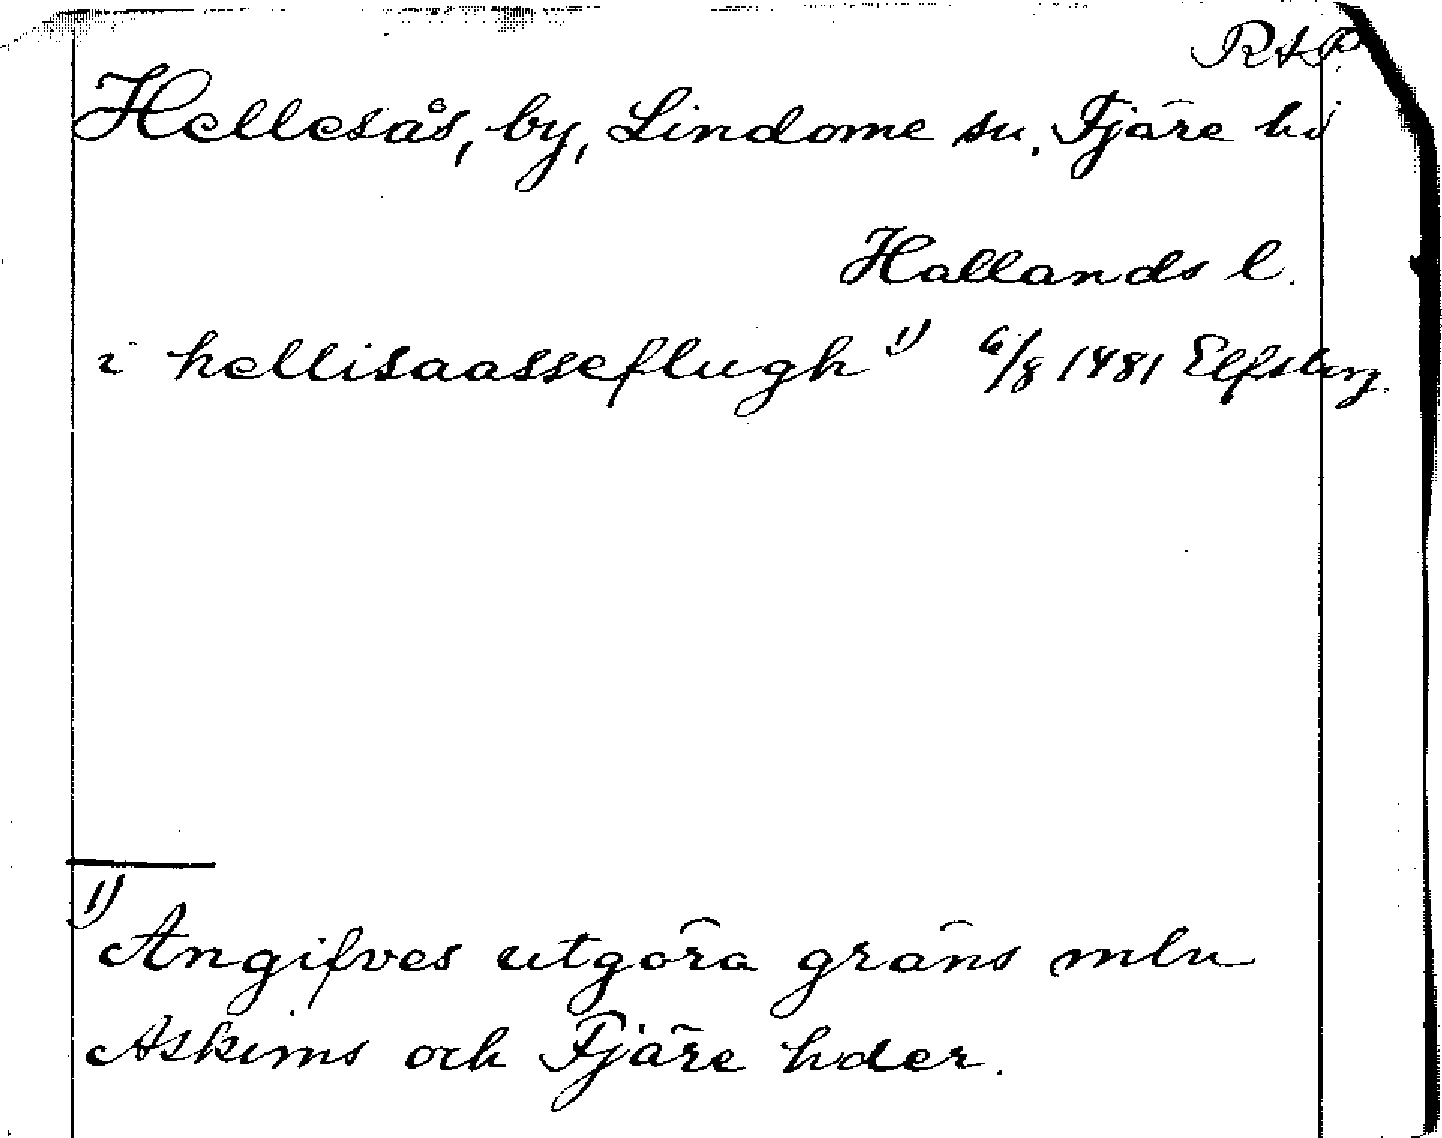 RAP.
Hellesås, by, Lindome sn. Fjäre hd
Hallands l.
i hellisaasseflugh 1) 6/8 1481 Elfsborg.
1)
Angifves utgöra gräns mln
Askims och Fjäre hder.